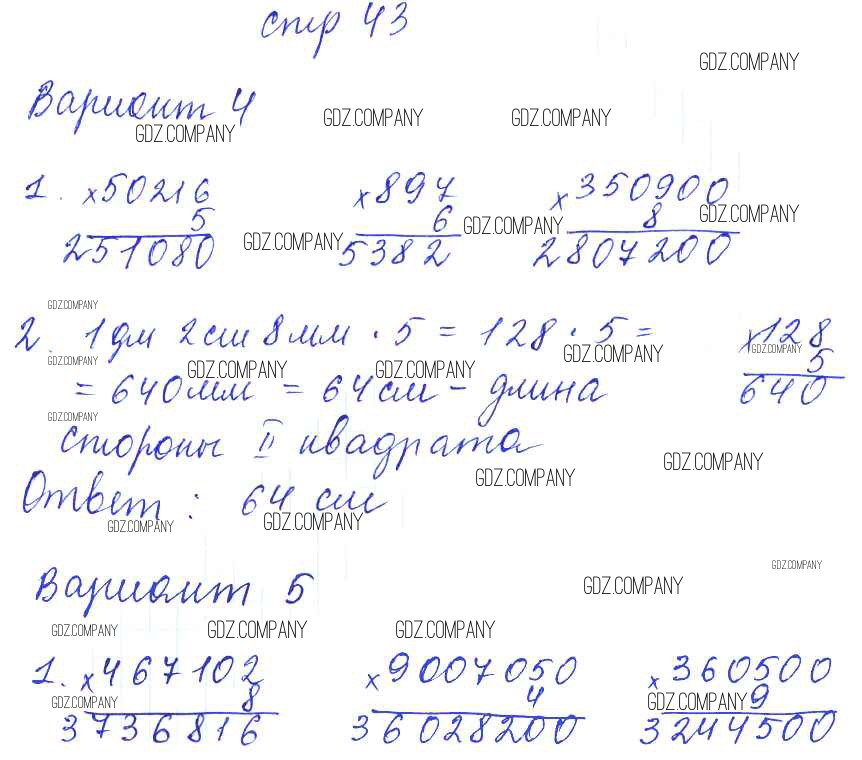 стр 43
GDZ.COMPANY
Вариант 4
GDZ.COMPANY GDZ.COMPANY GDZ.COMPANY
1. x50216 x897 x350900
5 6 8 GDZ.COMPANY GDZ.COMPANY
251080 GDZ.COMPANY 5382 2807200
GDZ.COMPANY
2. 1дм 2см 8мм · 5 = 128 · 5 = x128
GDZ.COMPANY GDZ.COMPANY GDZ.COMPANY 5
GDZ.COMPANY GDZ.COMPANY
= 640мм = 64см - длина 640
GDZ.COMPANY
стороны II квадрата
GDZ.COMPANY GDZ.COMPANY
Ответ: 64 см
GDZ.COMPANY GDZ.COMPANY
GDZ.COMPANY
Вариант 5 GDZ.COMPANY
GDZ.COMPANY GDZ.COMPANY GDZ.COMPANY
1. x467102 x9007050 x360500
GDZ.COMPANY 8 4 GDZ.COMPANY 9
3736816 36028200 3244500